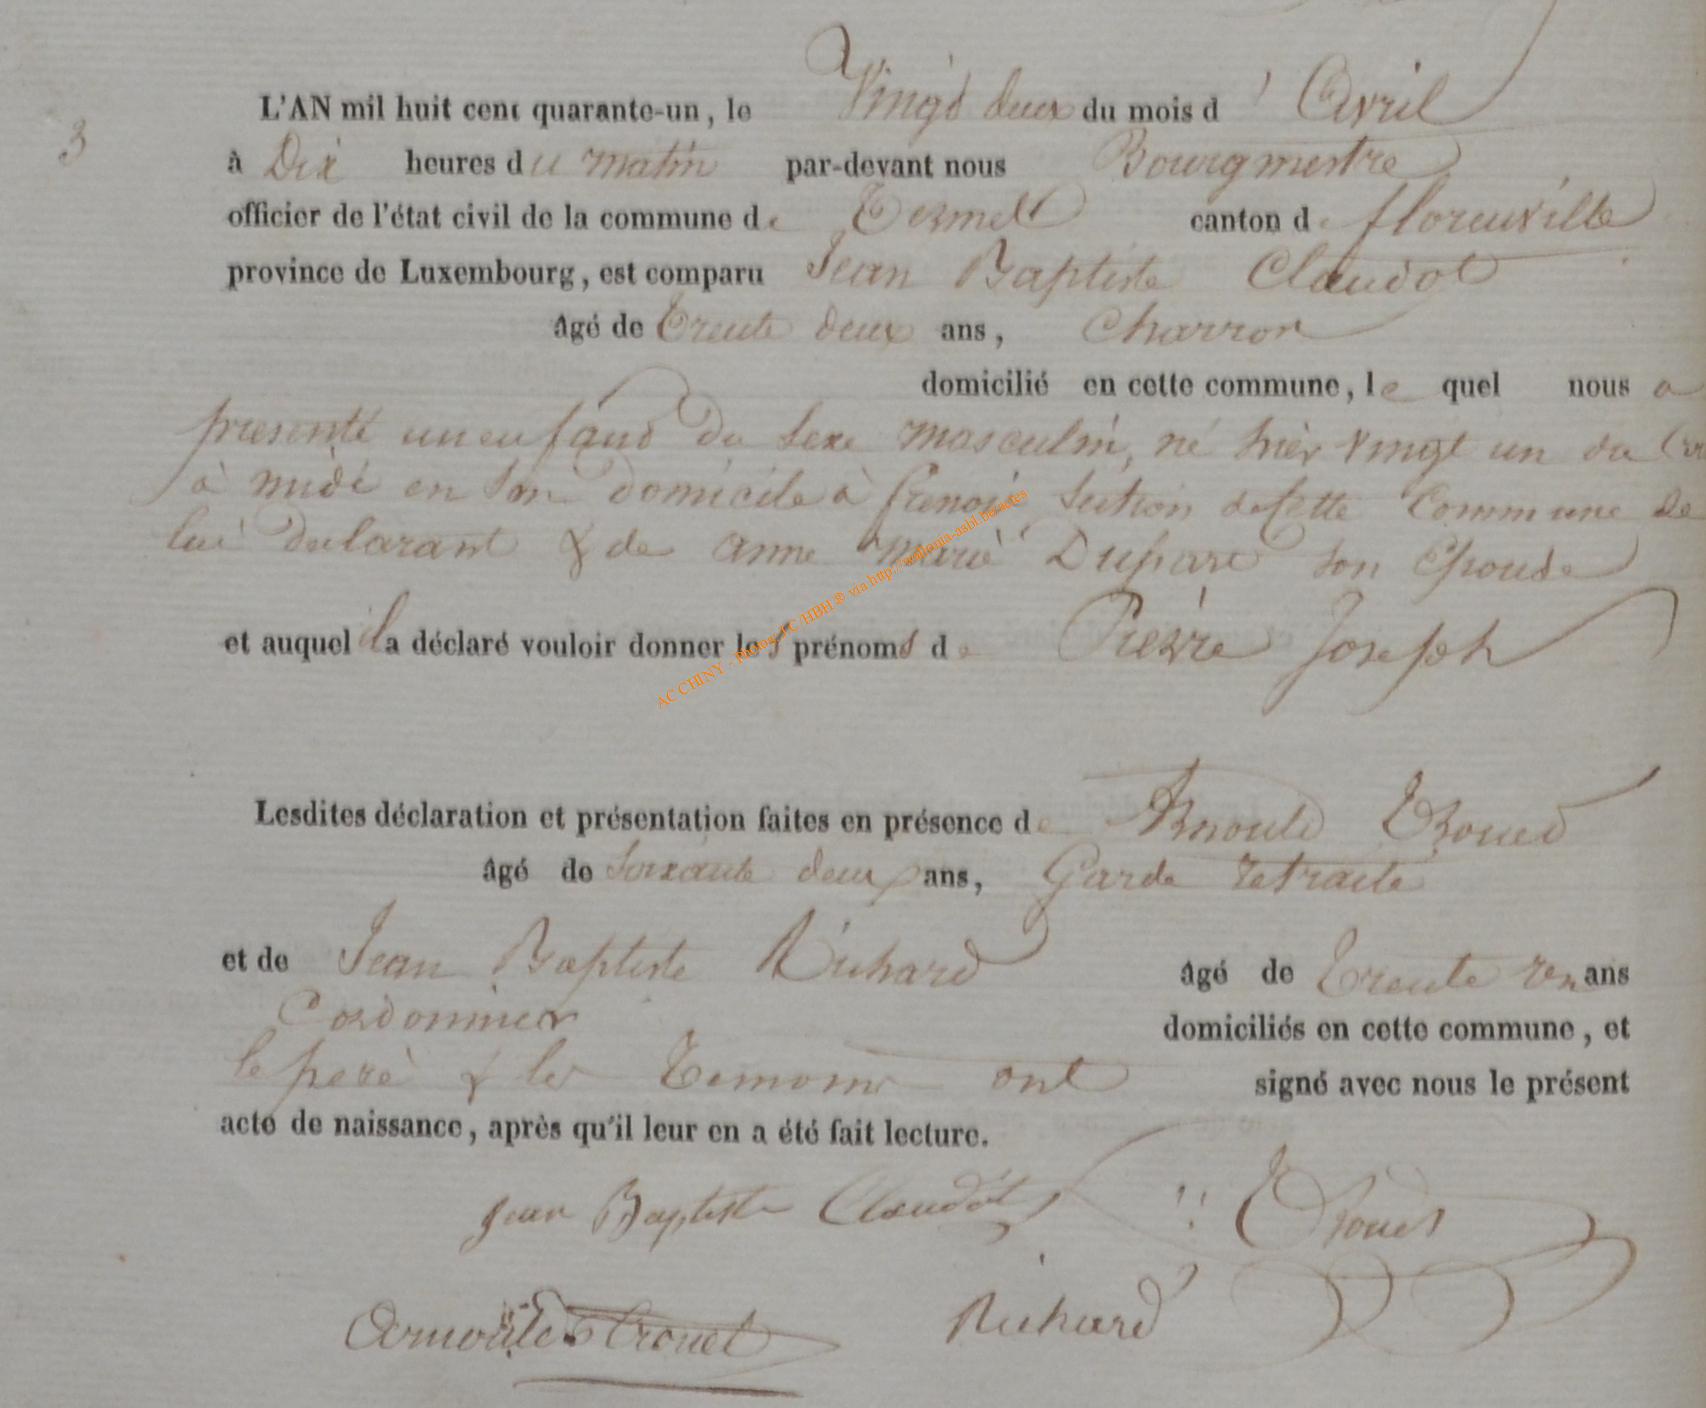 3
L'AN mil huit cent quarante-un, le Vingt deux du mois d'Avril
à Dix heures du matin par-devant nous Bourgmestre
officier de l'état civil de la commune de Termes canton de florenville
province de Luxembourg, est comparu Jean Baptiste Claudot
âgé de Trente deux ans, Charron
domicilié en cette commune, le quel nous a
presenté un enfant du sexe masculin, né hier vingt un du
à midi en son domicile à frenois section de cette Commune de
lui declarant & de anne marie Dupare son Epouse
et auquel il a déclaré vouloir donner les prénoms de Pierre Joseph
Lesdites déclaration et présentation faites en présence de Arnould Trouet
âgé de soixante deux ans, Garde retraite
et de Jean Baptiste Richard âgé de Trente ans
Cordonnier domiciliés en cette commune, et
le pere & les Temoins ont signé avec nous le présent
acte de naissance, après qu'il leur en a été fait lecture.
Jean Baptiste Claudot Trouet
Arnould Trouet Richard
AC CHINY - Photos JFC/HBH ® via http://wallonia-asbl.be/actes